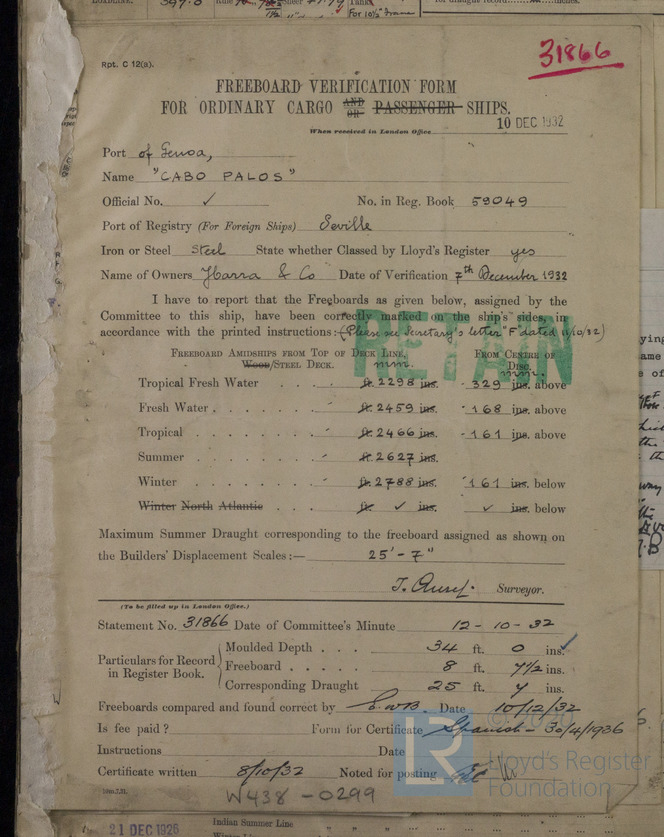 31866
Rpt. C 12(a).
FREEBOARD VERIFICATION FORM
FOR ORDINARY CARGO AND OR PASSENGER SHIPS.
When received in London Office 10 DEC 1932
Port of Genoa,
Name "CABO PALOS"
Official No. ✓ No. in Reg. Book 59049
Port of Registry (For Foreign Ships) Seville
Iron or Steel Steel State whether Classed by Lloyd's Register yes
Name of Owners Ybarra & Co Date of Verification 7th December 1932
I have to report that the Freeboards as given below, assigned by the
Committee to this ship, have been correctly marked on the ship's sides, in
accordance with the printed instructions: (Please see Secretary's letter "F" dated 11/10/32)
RETAIN
FREEBOARD AMIDSHIPS FROM TOP OF DECK LINE, FROM CENTRE OF
Wood/STEEL DECK. mm. DISC. mm.
Tropical Fresh Water . . . . ft. 2298 ins. 329 ins. above
Fresh Water . . . . . . . ft. 2459 ins. 168 ins. above
Tropical . . . . . . . . ft. 2466 ins. 161 ins. above
Summer . . . . . . . . ft. 2627 ins.
Winter . . . . . . . . ft. 2788 ins. 161 ins. below
Winter North Atlantic . . . ft. ✓ ins. ✓ ins. below
Maximum Summer Draught corresponding to the freeboard assigned as shown on
the Builders' Displacement Scales:— 25' - 7"
Surveyor.
(To be filled up in London Office.)
Statement No. 31866 Date of Committee's Minute 12 - 10 - 32
Particulars for Record in Register Book.
Moulded Depth . . . 34 ft. 0 ins. ✓
Freeboard . . . . . 8 ft. 7½ ins.
Corresponding Draught 25 ft. 7 ins.
Freeboards compared and found correct by E.W.B. Date 10/12/32
Is fee paid? Form for Certificate Spanish - 30/4/1936
Instructions Date
Certificate written 8/10/32 Noted for posting
W438-0299
© 2020
LR
Lloyd's Register
Foundation
21 DEC 1926
Indian Summer Line